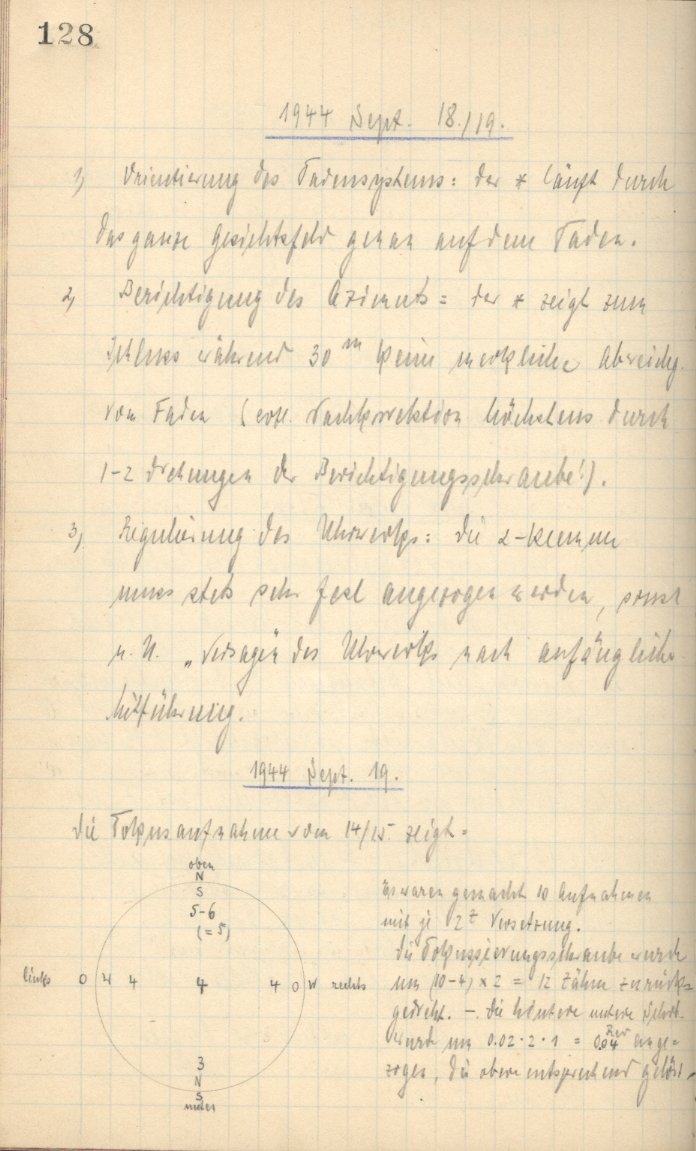 128
1944 Sept. 18./19.
1) Orientierung des Fadensystems: der * läuft durch
das ganze Gesichtsfeld genau auf dem Faden.
2) Berichtigung des Azimuts: der * zeigt zum
Schluss während 30 m keine merkliche Abweichg.
vom Faden (evtl. Nachkorrektion höchstens durch
1-2 Drehungen der Berichtigungsschraube!).
3) Regulierung des Uhrwerks: die α-Klemme
muss stets sehr fest angezogen werden, sonst
u. U. „Versagen des Uhrwerks nach anfänglicher
Mitführung.
1944 Sept. 19.
Die Fokusaufnahme vom 14/15. zeigt:
oben
N
S
5-6
(=5)
links O W 4 4 4 O W rechts
3
N
S
unten
Es waren gemacht 10 Aufnahmen
mit je 2 z Versetzung.
Die Fokussierungsschraube wurde
um (10-4) × 2 = 12 Zähne zurück=
gedreht. –. Die hintere untere
wurde um 0.02·2·1 = 0.04 Rev ange=
zogen, die obere entsprechend gelöst.